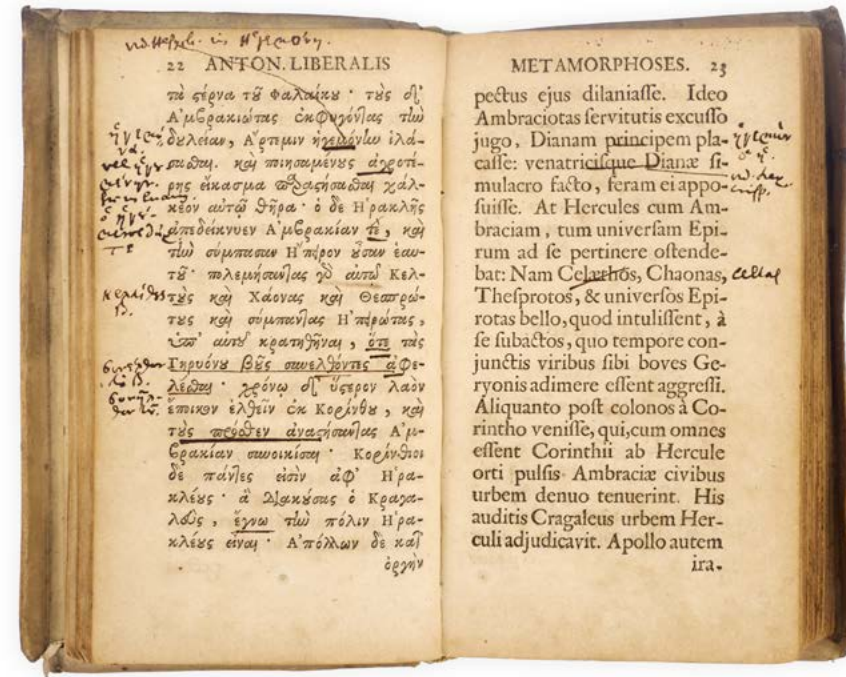 22 ANTON. LIBERALIS
τὰ ϛέρνα τῦ Φαλαίκυ · τὺς δὲ
Ἀμβρακιώτας ἐκφυγόνας τὴν
δυλείαν, Ἄρτεμιν ἡγεμόνην ἱλά-
σαθαι. καὶ ποιησαμένυς ἀγροτέ-
ρης εἴκασμα παραϛήσαθαι χάλ-
κεον αὐτῷ θῆρα · ὁ δὲ Ἡρακλῆς
ἀπεδείκνυεν Ἀμβρακίαν τὲ, καὶ
τὴν σύμπασαν Ἤπειρον ὖσαν ἑαυ-
τῦ · πολεμήσανας γὸ αὐτῷ Κελ-
τὺς καὶ Χάονας καὶ Θεσπρώ-
τυς καὶ σύμπανας Ἠπειρώτας,
ὑπ' αὐτῦ κρατηθῆναι, ὅτε τὰς
Γηρυόνυ βῦς συνελθόντες ἀφε-
λέθαι · χρόνῳ δὲ ὕϛερον λαὸν
ἔποικον ἐλθεῖν ἐκ Κορίνθυ, καὶ
τὺς πρόσθεν ἀναϛήσανας Ἀμ-
βρακίαν συνοικίσαι · Κορίνθιοι
δὲ πάντες εἰσὶν ἀφ' Ἡρα-
κλέυς · ἃ διακύσας ὁ Κραγα-
λεὺς, ἔγνω τὴν πόλιν Ἡρα-
κλέυς εἶναι · Ἀπόλλων δὲ κατ'
ὀργὴν
METAMORPHOSES. 23
pectus ejus dilaniaſſe. Ideo
Ambraciotas ſervitutis excuſſo
jugo, Dianam principem pla-
caſſe: venatriciſque Dianæ ſi-
mulacro facto, feram ei appo-
ſuiſſe. At Hercules cum Am-
braciam, tum univerſam Epi-
rum ad ſe pertinere oſtende-
bat: Nam Celæthos, Chaonas,
Theſprotos, & univerſos Epi-
rotas bello, quod intuliſſent, à
ſe ſubactos, quo tempore con-
junctis viribus ſibi boves Ge-
ryonis adimere eſſent aggreſſi.
Aliquanto poſt colonos à Co-
rintho veniſſe, qui, cum omnes
eſſent Corinthii ab Hercule
orti pulſis Ambraciæ civibus
urbem denuo tenuerint. His
auditis Cragaleus urbem Her-
culi adjudicavit. Apollo autem
ira-